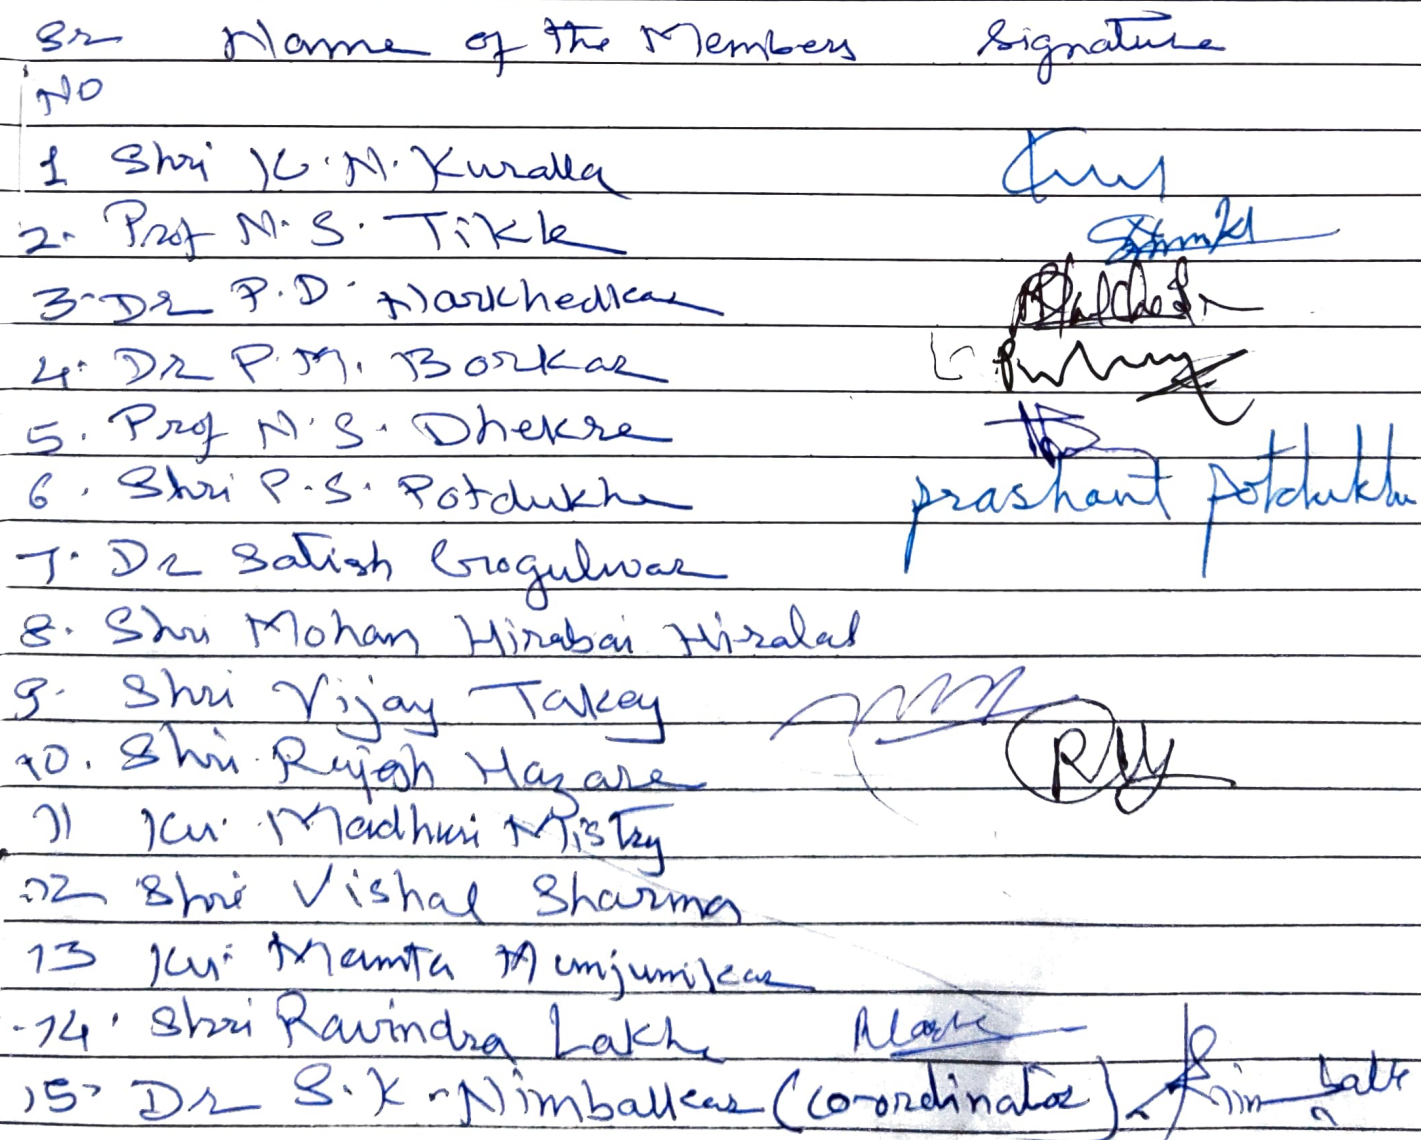 Sr Name of the Members Signature
No
1 Shri K. N. Kuralla
2. Prof N. S. Tikle
3. Dr P. D. Narkhedkar
4. Dr P. M. Borkar
5. Prof N. S. Dhekre
6. Shri P. S. Potdukhe prashant potdukhe
7. Dr Satish Gogulwar
8. Shri Mohan Hirabai Hiralal
9. Shri Vijay Takey
10. Shri Rajesh Hazare
11 Ku. Madhuri Mistry
12 Shri Vishal Sharma
13 Ku. Mamta Munjumkar
14. Shri Ravindra Lakhe
15. Dr S. K. Nimbalkar (co-ordinator).